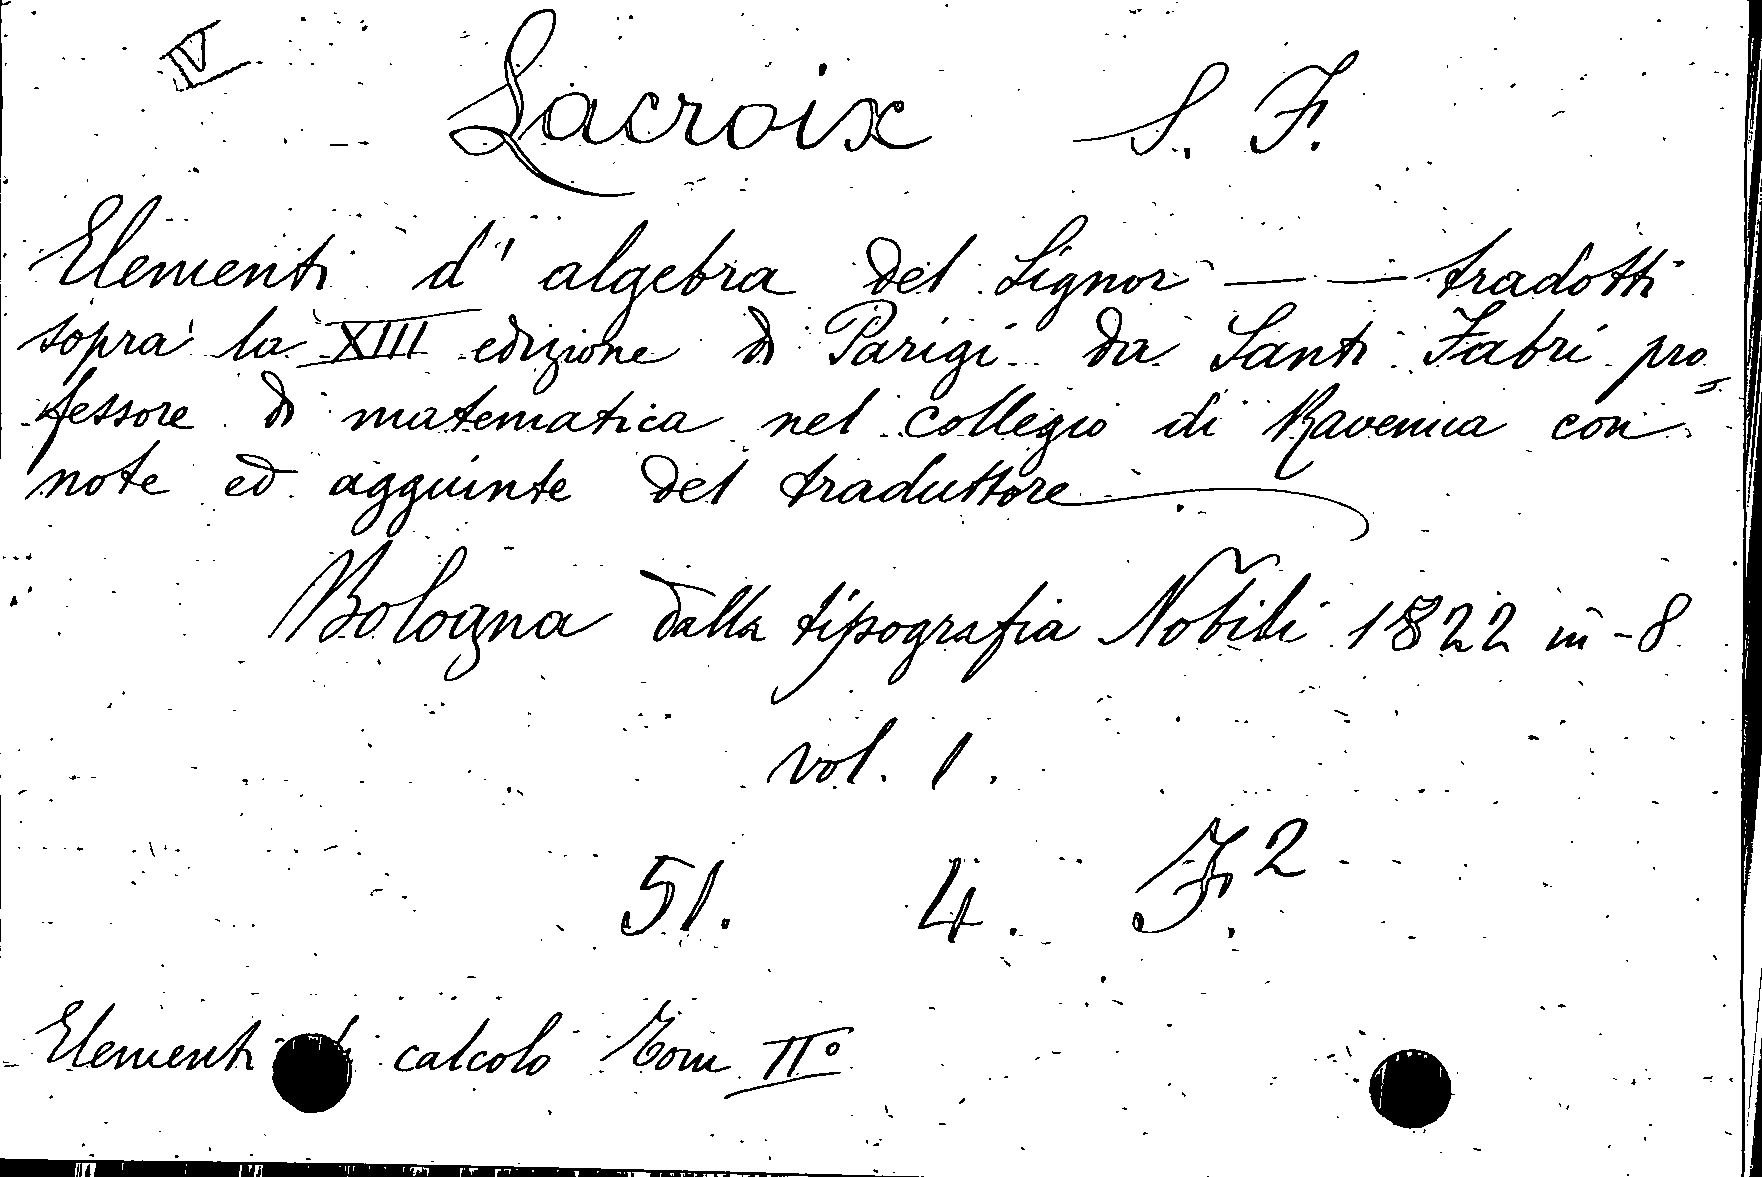 IV
Lacroix S. F.
Elementi d' algebra del Signor — — tradotti
sopra la XIII edizione di Parigi da Santi Fabri pro=
fessore di matematica nel collegio di Ravenna con
note ed aggiunte del traduttore
Bologna dalla tipografia Nobili 1822 in-8
vol. 1.
51. 4. F.2
Elementi calcolo Tom IIº